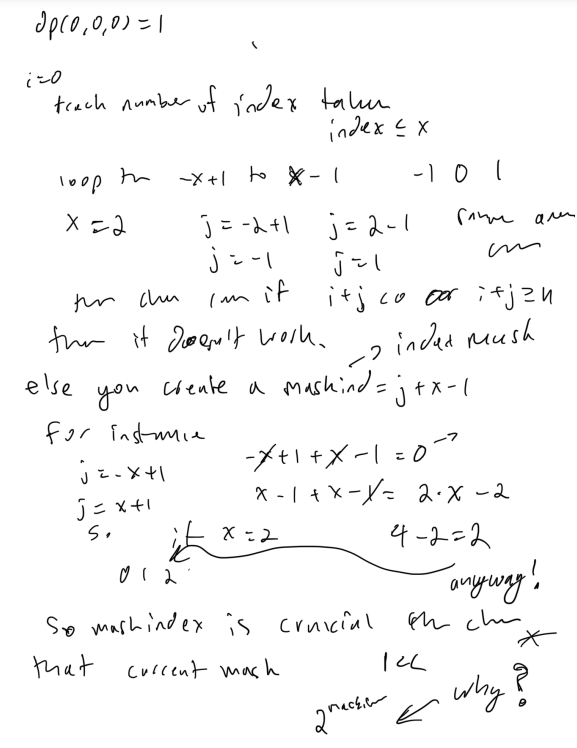 dp(0,0,0) = 1
i=0
track number of index taken
index ≤ x
loop from -x+1 to x-1 -1 0 1
x = 2 j = -2+1 j = 2-1
j = -1 j = 1
if i+j <0 or i+j ≥ n
then it doesn't work.
→ index mask
else you create a maskind = j+x-1
for instance
j = -x+1 -x+1+x-1 = 0 →
j = x+1 x-1+x-1 = 2·x-2
so if x = 2 4-2=2
0 1 2 anyway!
So maskindex is crucial
that current mask 1<<
2 why?